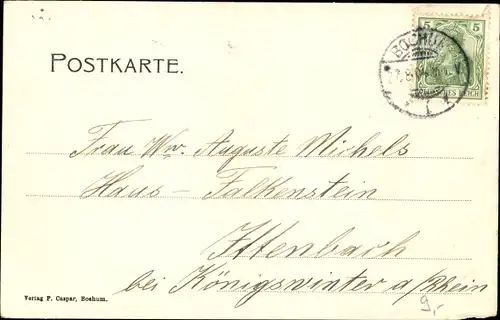 5 5
BOCHUM
POSTKARTE.
Frau Ww. Auguste Michels
Haus - Falkenstein
Ittenbach
bei Königswinter a/Rhein
Verlag F. Caspar, Bochum.
9,-